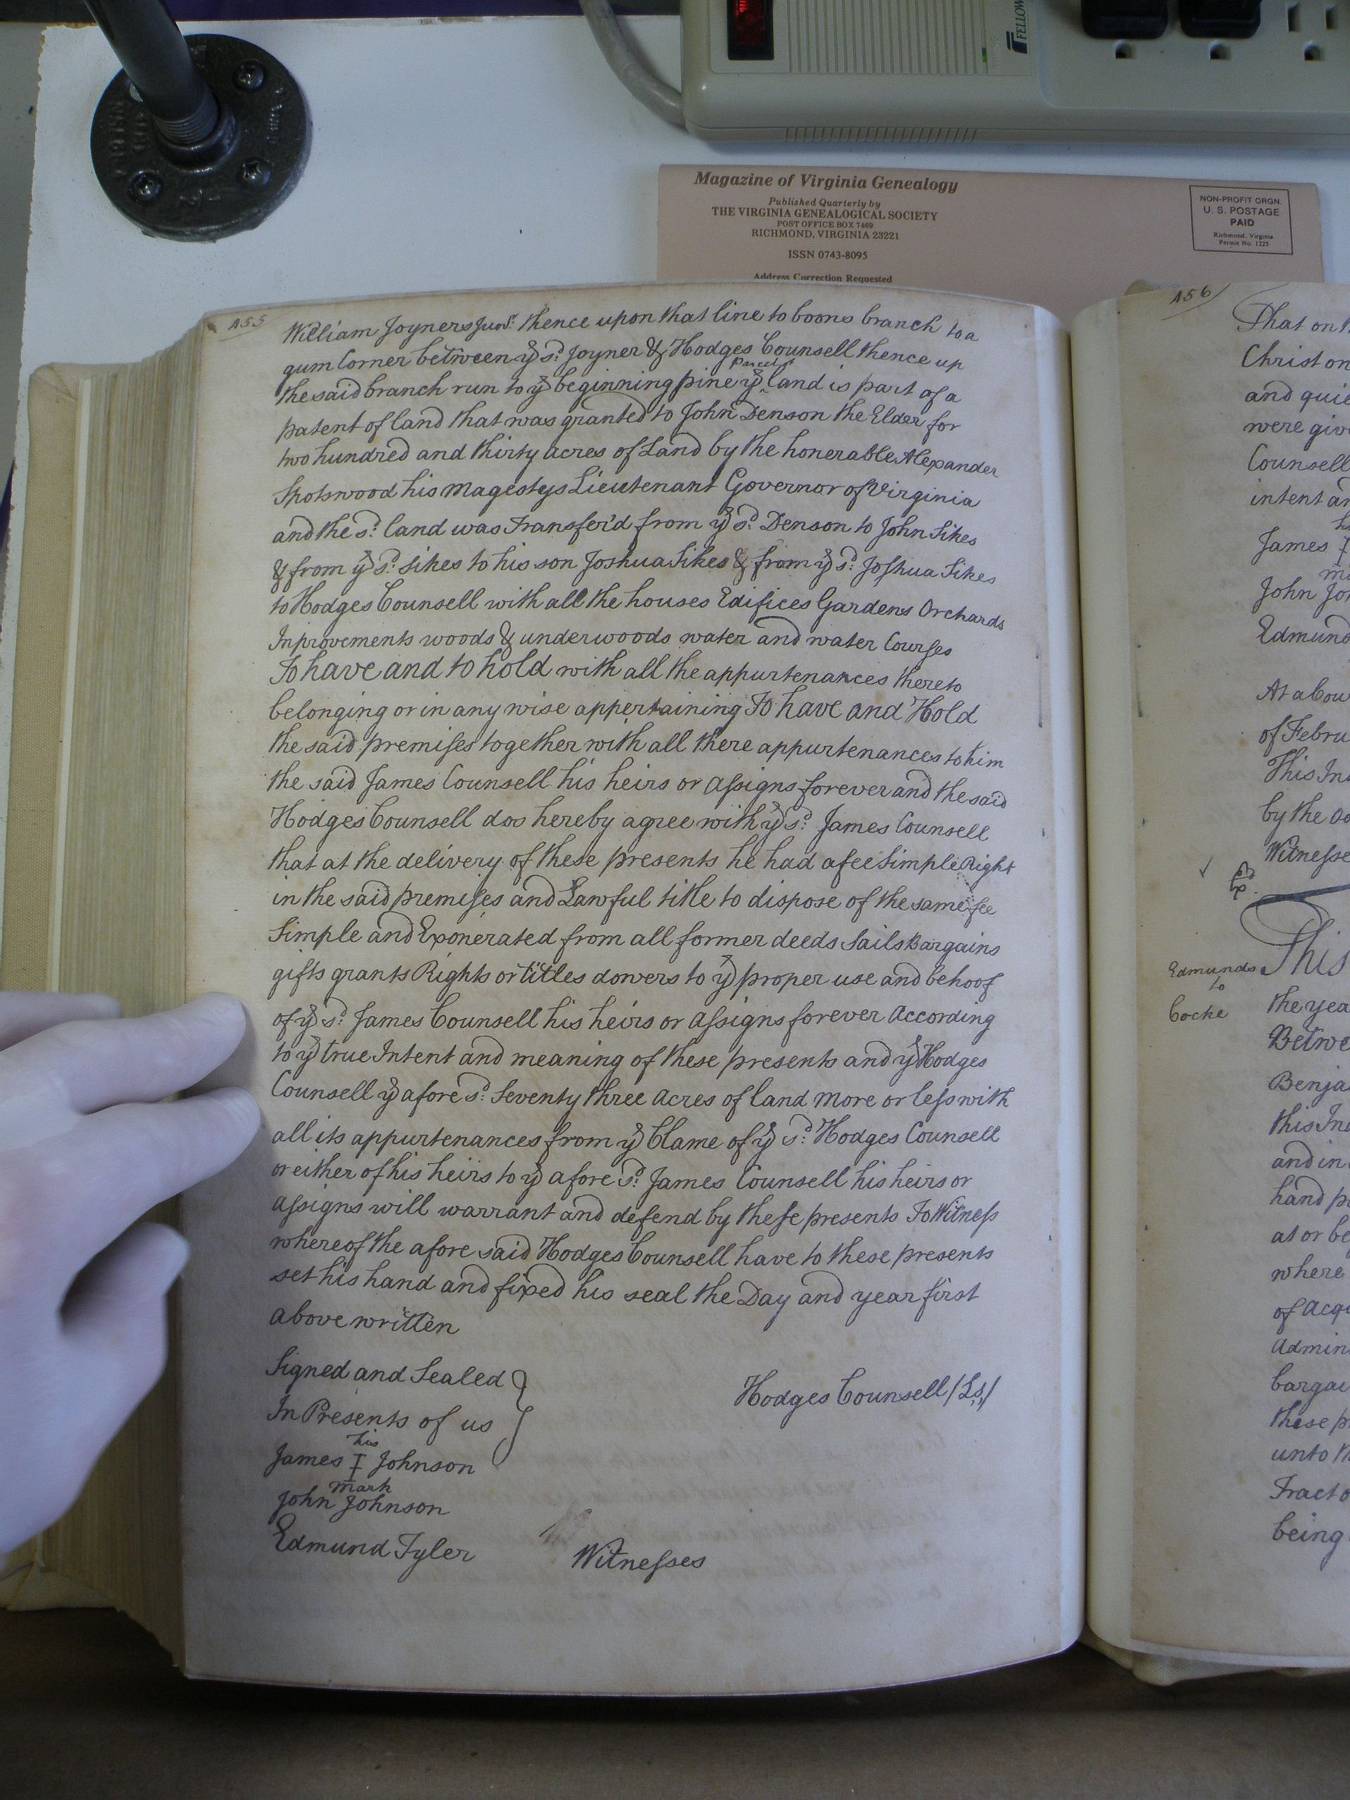 FELLOW
Magazine of Virginia Genealogy
Published Quarterly by
THE VIRGINIA GENEALOGICAL SOCIETY
POST OFFICE BOX 7469
RICHMOND, VIRGINIA 23221
ISSN 0743-8095
Address Correction Requested
NON-PROFIT ORGN.
U. S. POSTAGE
PAID
Richmond, Virginia
Permit No. 1225
455
William Joyners Junr. thence upon that line to boons branch to a
gum Corner between ye sd. Joyner & Hodges Counsell thence up
the said branch run to ye beginning pine ye parcel land is part of a
patent of land that was granted to John Denson the Elder for
two hundred and thirty acres of Land by the honerable Alexander
Spotswood his Magestys Lieutenant Governor of Virginia
and the sd. land was Transfer'd from ye sd. Denson to John Sikes
& from ye sd. Sikes to his son Joshua Sikes & from ye sd. Joshua Sikes
to Hodges Counsell with all the houses Edifices Gardens Orchards
Inprovements woods & underwoods water and water Courses
To have and to hold with all the appurtenances thereto
belonging or in any wise appertaining To have and Hold
the said premises together with all there appurtenances to him
the said James Counsell his heirs or assigns forever and the said
Hodges Counsell dos hereby agree with ye sd. James Counsell
that at the delivery of these presents he had a fee Simple Right
in the said premises and Lawful title to dispose of the same fee
Simple and Exonerated from all former deeds Sails Bargains
gifts grants Rights or titles dowers to ye proper use and behoof
of ye sd. James Counsell his heirs or assigns forever according
to ye true Intent and meaning of these presents and ye Hodges
Counsell ye afore sd. Seventy three acres of land more or less with
all its appurtenances from ye Clame of ye sd. Hodges Counsell
or either of his heirs to ye afore sd. James Counsell his heirs or
assigns will warrant and defend by these presents To Witness
whereof the afore said Hodges Counsell have to these presents
set his hand and fixed his seal the Day and year first
above written
Signed and Sealed
In Presents of us
Hodges Counsell /Ls/
his
James I Johnson
mark
John Johnson
Edmund Tyler
Witnesses
456
That on
Christ on
and quie
were giv
Counsell
intent an
James I
John Jo
Edmund
At a Cou
of Febru
This In
by the
Witnesse
This
Edmunds
to
Cocke
the yea
Betwe
Benja
this In
and in
hand p
at or be
where
of acq
Admin
bargai
these p
unto th
Tract o
being